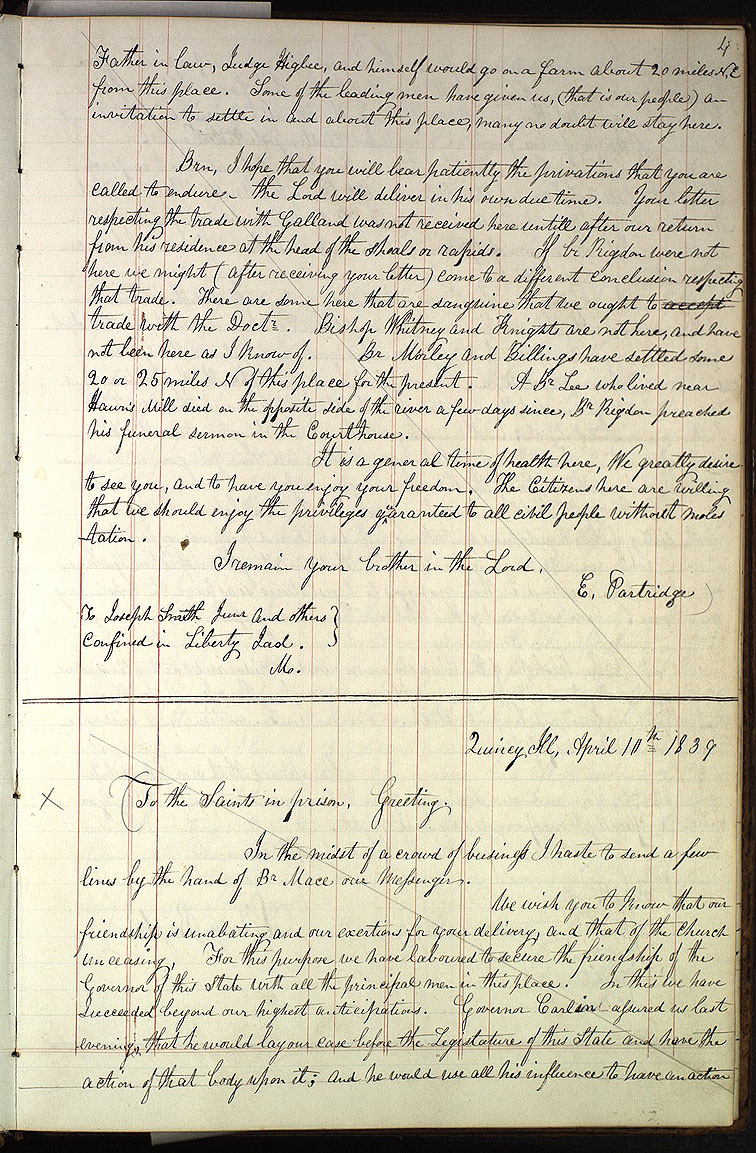 4
Father in law, Judge Higbee, and himself would go on a farm about 20 miles N.E
from this place. Some of the leading men have given us, (that is our people) an
invitation to settle in and about this place, many no doubt will stay here.
Brn, I hope that you will bear patiently the privations that you are
called to endure - the Lord will deliver in his own due time. Your letter
respecting the trade with Galland was not received here untill after our return
from his residence at the head of the shoals or rapids. If br Rigdon were not
here we might (after receiving your letter) come to a different conclusion respecting
that trade. There are some here that are sanguine that we ought to accept
trade with the Doctr. Bishop Whitney and Knights are not here, and have
not been here as I know of. Br Morley and Billings have settled some
20 or 25 miles N of this place for the present. A Br Lee who lived near
Hawn's Mill died on the opposite side of the river a few days since, Br Rigdon preached
his funeral sermon in the Court house.
It is a general time of health here, We greatly desire
to see you, and to have you enjoy your freedom. The Citizens here are willing
that we should enjoy the privileges guaranteed to all civil people without moles
tation.
I remain your brother in the Lord.
E. Partridge
To Joseph Smith Junr and others }
Confined in Liberty Jail.
Mo.
Quincy Ill, April 10th 1839
X To the Saints in prison, Greeting.
In the midst of a crowd of business I haste to send a few
lines by the hand of Br Mace our Messenger.
We wish you to know that our
friendship is unabating and our exertions for your delivery, and that of the Church
unceasing. For this purpose we have laboured to secure the friendship of the
Governor of this State with all the principal men in this place. In this we have
succeeded beyond our highest anticipations. Governor Carlin assured us last
evening, that he would lay our case before the Legislature of this State and have the
action of that body upon it; and he would use all his influence to have an action